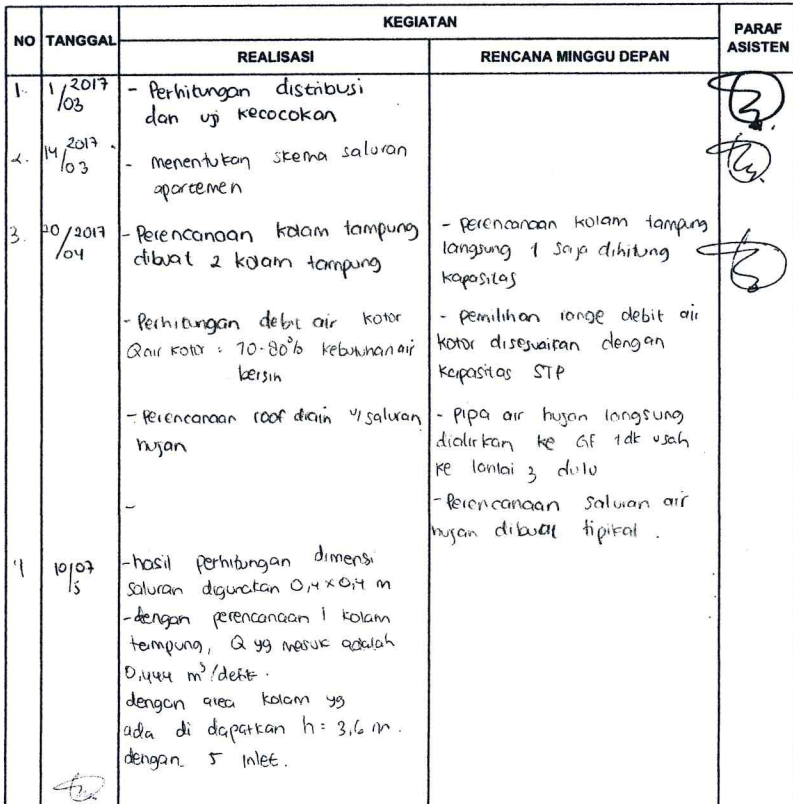 NO TANGGAL KEGIATAN PARAF ASISTEN
REALISASI RENCANA MINGGU DEPAN
1. 1/03 2017 - Perhitungan distribusi
dan uji kecocokan
2. 14/03 2017. - menentukan skema saluran
apartemen
3. 20/04 2017 - Perencanaan kolam tampung
dibuat 2 kolam tampung
- perencanaan kolam tampung
langsung 1 saja dihitung
kapasitas
- Perhitungan debit air kotor
Qair kotor : 70-80% kebutuhan air
bersih
- pemilihan range debit air
kotor disesuaikan dengan
kapasitas STP
- perencanaan roof drain u/ saluran
hujan
- Pipa air hujan langsung
dialirkan ke GF tdk usah
ke lantai 3 dulu
-
- Perencanaan saluran air
hujan dibuat tipikal.
4
- hasil perhitungan dimensi
saluran digunakan 0,4 x 0,4 m
- dengan perencanaan 1 kolam
tampung, Q yg masuk adalah
0,444 m³/detik.
dengan area kolam yg
ada di dapatkan h = 3,6 m.
dengan 5 inlet.